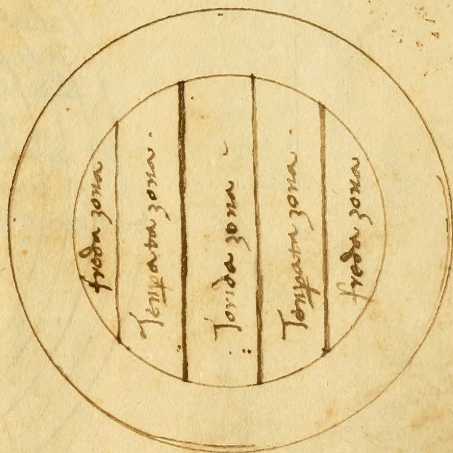 freda zona
Temparata zona.
: Torida zona -
Temparata zona.
freda zona